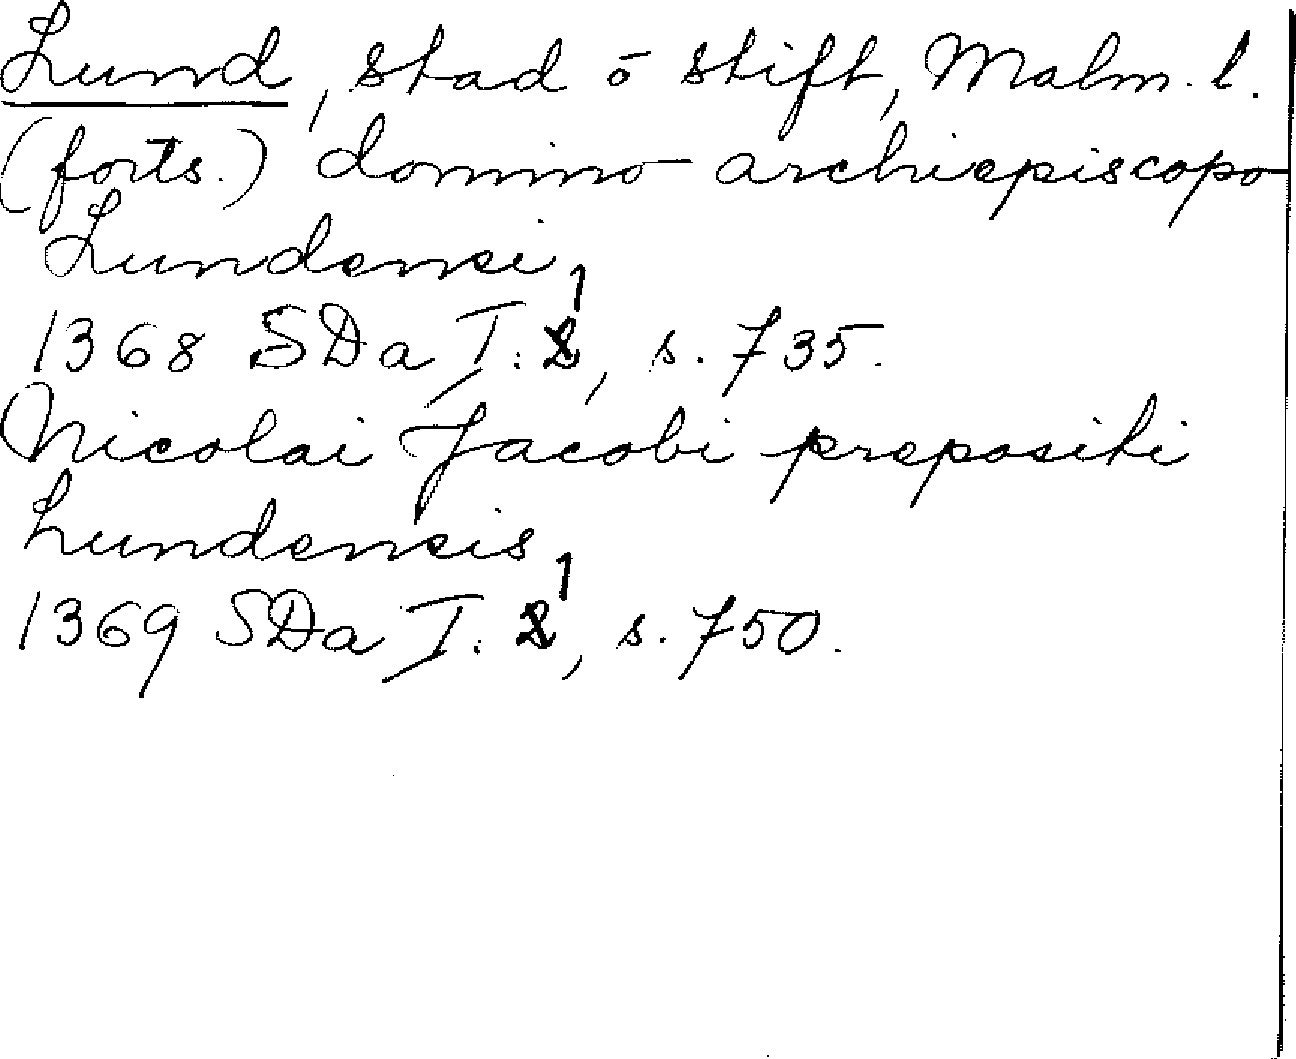 Lund, stad o stift, Malm. l.
(forts.) domino archiepiscopo
Lundensi,
1368 SDa I: 1, s. 735.
Nicolai Jacobi prepositi
Lundensis,
1369 SDa I: 1, s. 750.